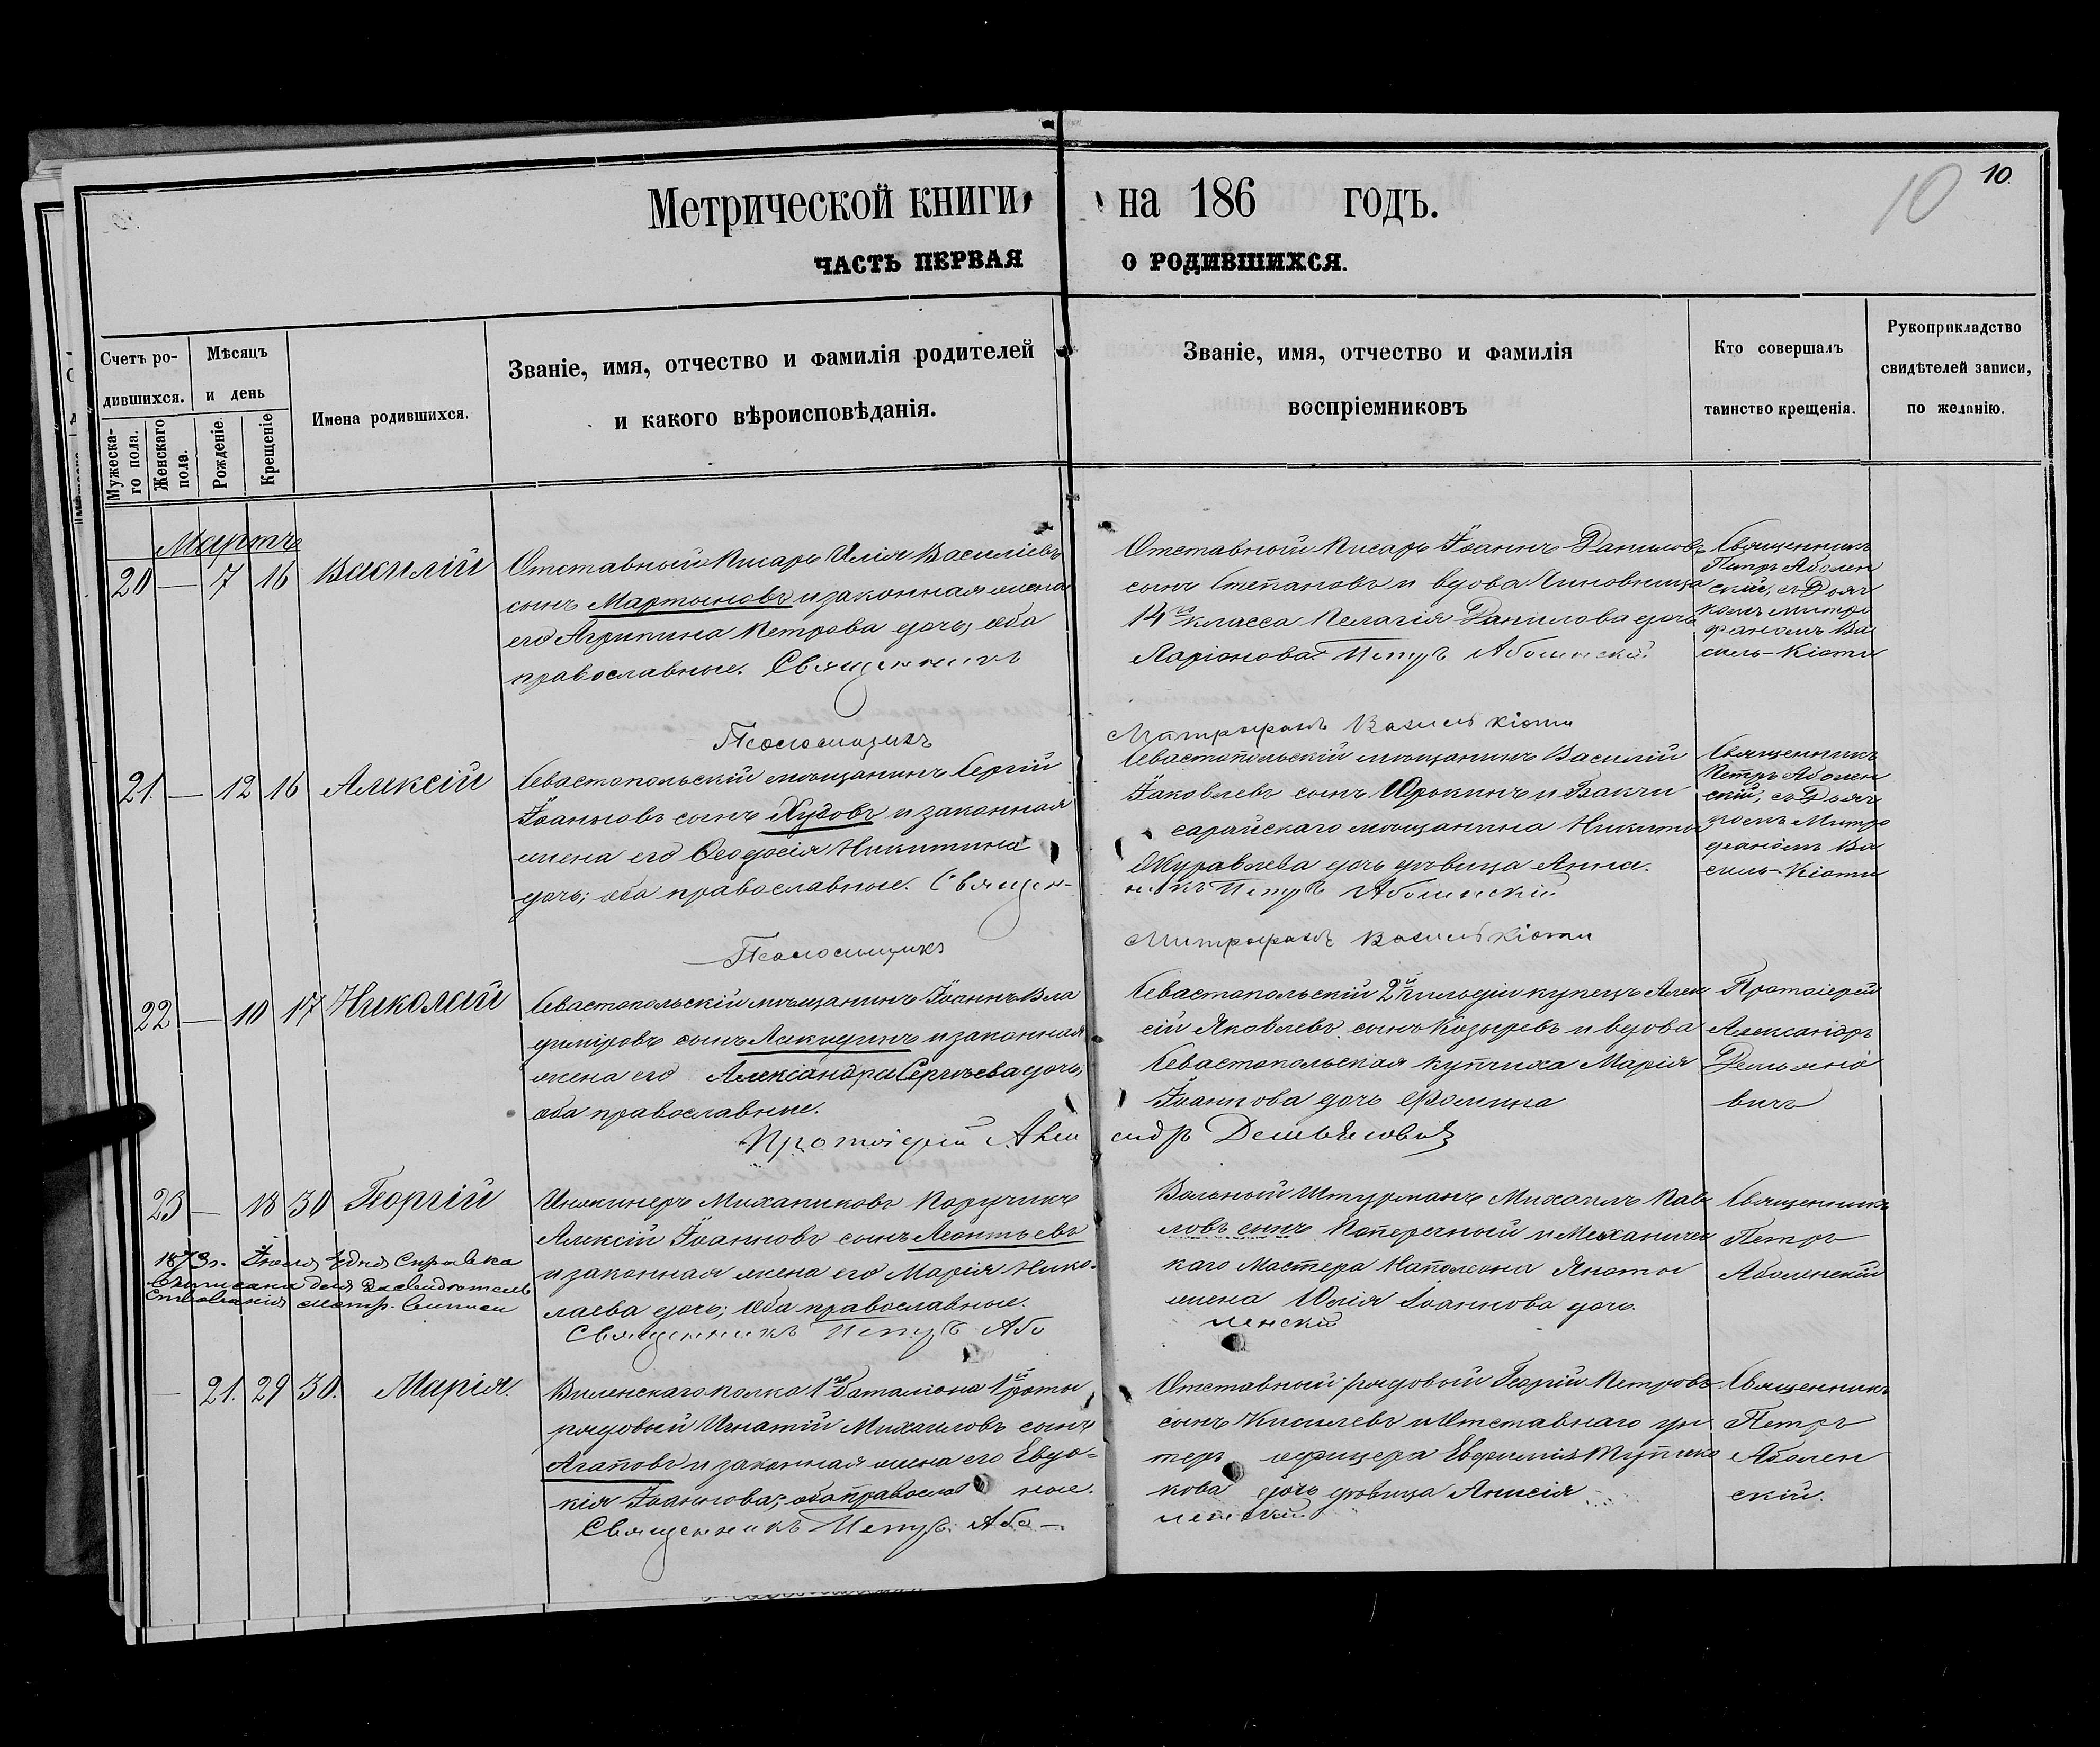 10.
10
Метрической книги на 186 годъ.
ЧАСТЬ ПЕРВАЯ О РОДИВШИХСЯ.
Счетъ ро-
дившихся.
Мѣсяцъ
и день
Мужеска-
го пола.
Женскаго
пола.
Рожденіе.
Крещеніе
Имена родившихся.
Званіе, имя, отчество и фамилія родителей
и какого вѣроисповѣданія.
Званіе, имя, отчество и фамилія
воспріемниковъ
Кто совершалъ
таинство крещенія.
Рукоприкладство
свидѣтелей записи,
по желанію.
Мартъ
20 — 7 16 Василій
Отставный Писарь Илія Василіевъ
сынъ Мартыновъ и законная жена
его Агрипина Петрова дочь; оба
православные. Священникъ
Отставной Писарь Іоаннъ Даниловъ
сынъ Степановъ и вдова Чиновница
14го класса Пелагія Данилова дочь
Ларіонова. Петръ Аболенскій
Священникъ
Петръ Аболен
скій, съ Дьяч
комъ Митро
фаномъ Ва
силь-Кіоти
Псаломщикъ
Митрофанъ Василькіоти
21. — 12 16 Алексій
Севастопольскій мѣщанинъ Сергій
Іоанновъ сынъ Худовъ и законная
жена его Ѳеодосія Никитина
дочь; оба православные. Священ-
Севастопольскій мѣщанинъ Василій
Іаковлевъ сынъ Юрокинъ и Бакчи
сарайскаго мѣщанина Никиты
Журавлева дочь дѣвица Анна.
никъ Петръ Аболенскій
Священникъ
Петръ Аболен
скій, съ Дьяч
комъ Митро
фаномъ Ва
силь-Кіоти
Псаломщикъ
Митрофанъ Василькіоти
22 — 10 17 Николай
Севастопольскій мѣщанинъ Іоаннъ Вла
диміровъ сынъ Лакидинъ и законная
жена его Александра Сергѣева дочь;
оба православные.
Протоіерей Алек
Севастопольскій 2й гильдіи купецъ Алек
сій Яковлевъ сынъ Козыревъ и вдова
Севастопольская купчиха Марія
Іоаннова дочь Фомина
сндръ Демьяновичъ
Протоіерей
Александръ
Демьяно
вичъ
23 — 18 30 Георгій
1873г. Іюля дня Справка
для Засвидѣтель
ствованія метр.
Инжинеръ Механиковъ Поручикъ
Алексій Іоанновъ сынъ Леонтьевъ
и законная жена его Марія Нико-
лаева дочь; оба православные.
Священникъ Петръ Або
Вольный Штурманъ Михаилъ Пав
ловъ сынъ Поперечный и Механичес
каго Мастера Наполеона Яноты
жена Юлія Іоаннова дочь.
ленскій
Священникъ
Петръ
Аболенскій
— 21. 29 30. Марія.
Виленскаго полка 1го баталіона 1й роты
рядовый Игнатій Михаиловъ сынъ
Агаповъ и законная жена его Евдо-
кія Іоаннова; оба правосла ные.
Священникъ Петръ Або-
Отставный рядовой Георгій Петровъ
сынъ Киселевъ и Отставнаго ун
теръ офицера Евфимія
кова дочь дѣвица Анисія
ленскій
Священникъ
Петръ
Аболен
скій.